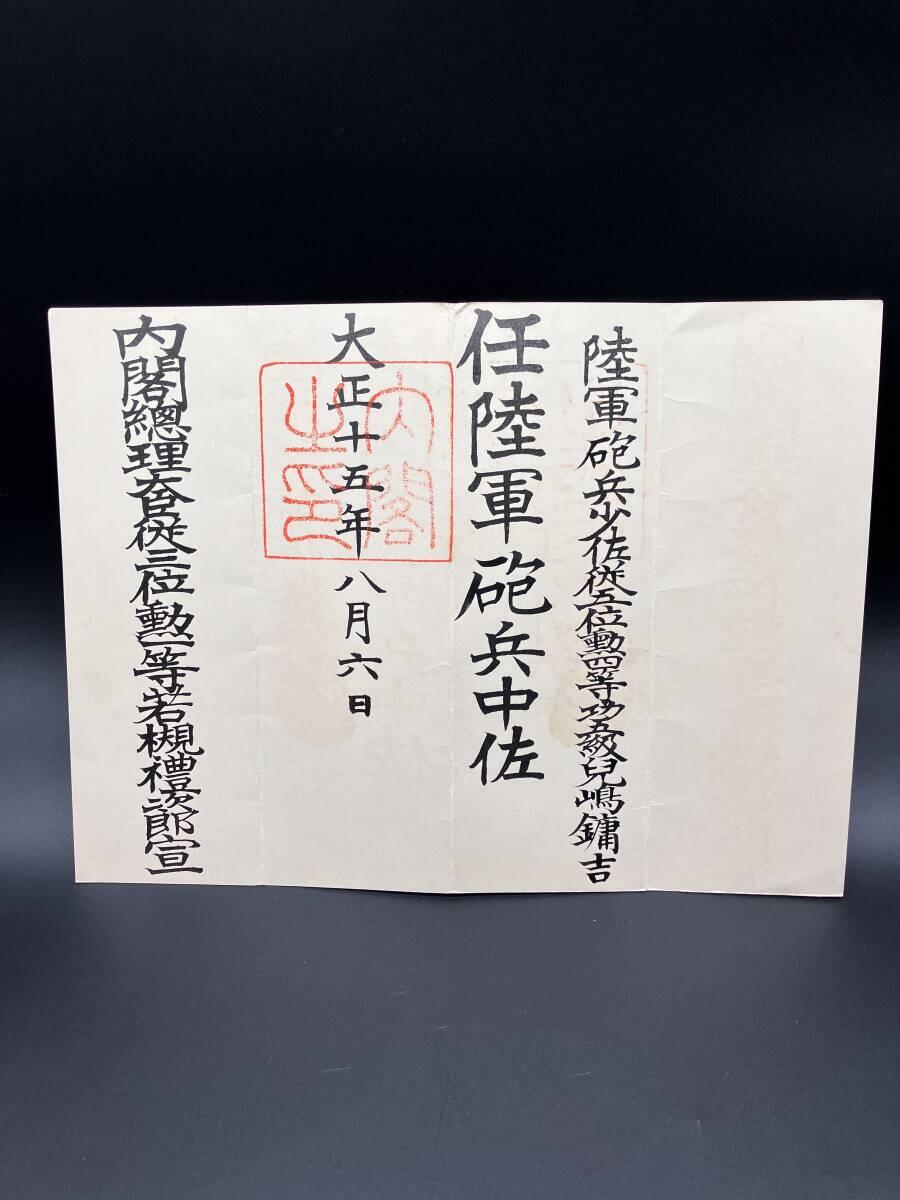 陸軍砲兵少佐従五位勲四等功五級兒嶋鏞吉
任陸軍砲兵中佐
大正十五年八月六日
内閣之印
内閣總理大臣従三位勲一等若槻禮次郎宣